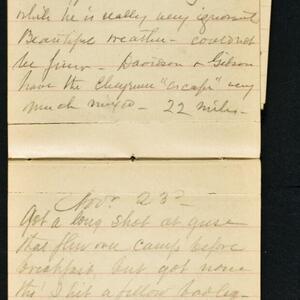 while he is really very ignorant
Beautiful weather - could not
be finer - Davidson & Gibson
have the Cheyenne "escape" very
much mixed - 22 miles -
Nov. 23rd
Got a long shot at geese
that flew over camp before
breakfast, but got none
tho' I hit a fellow badly -